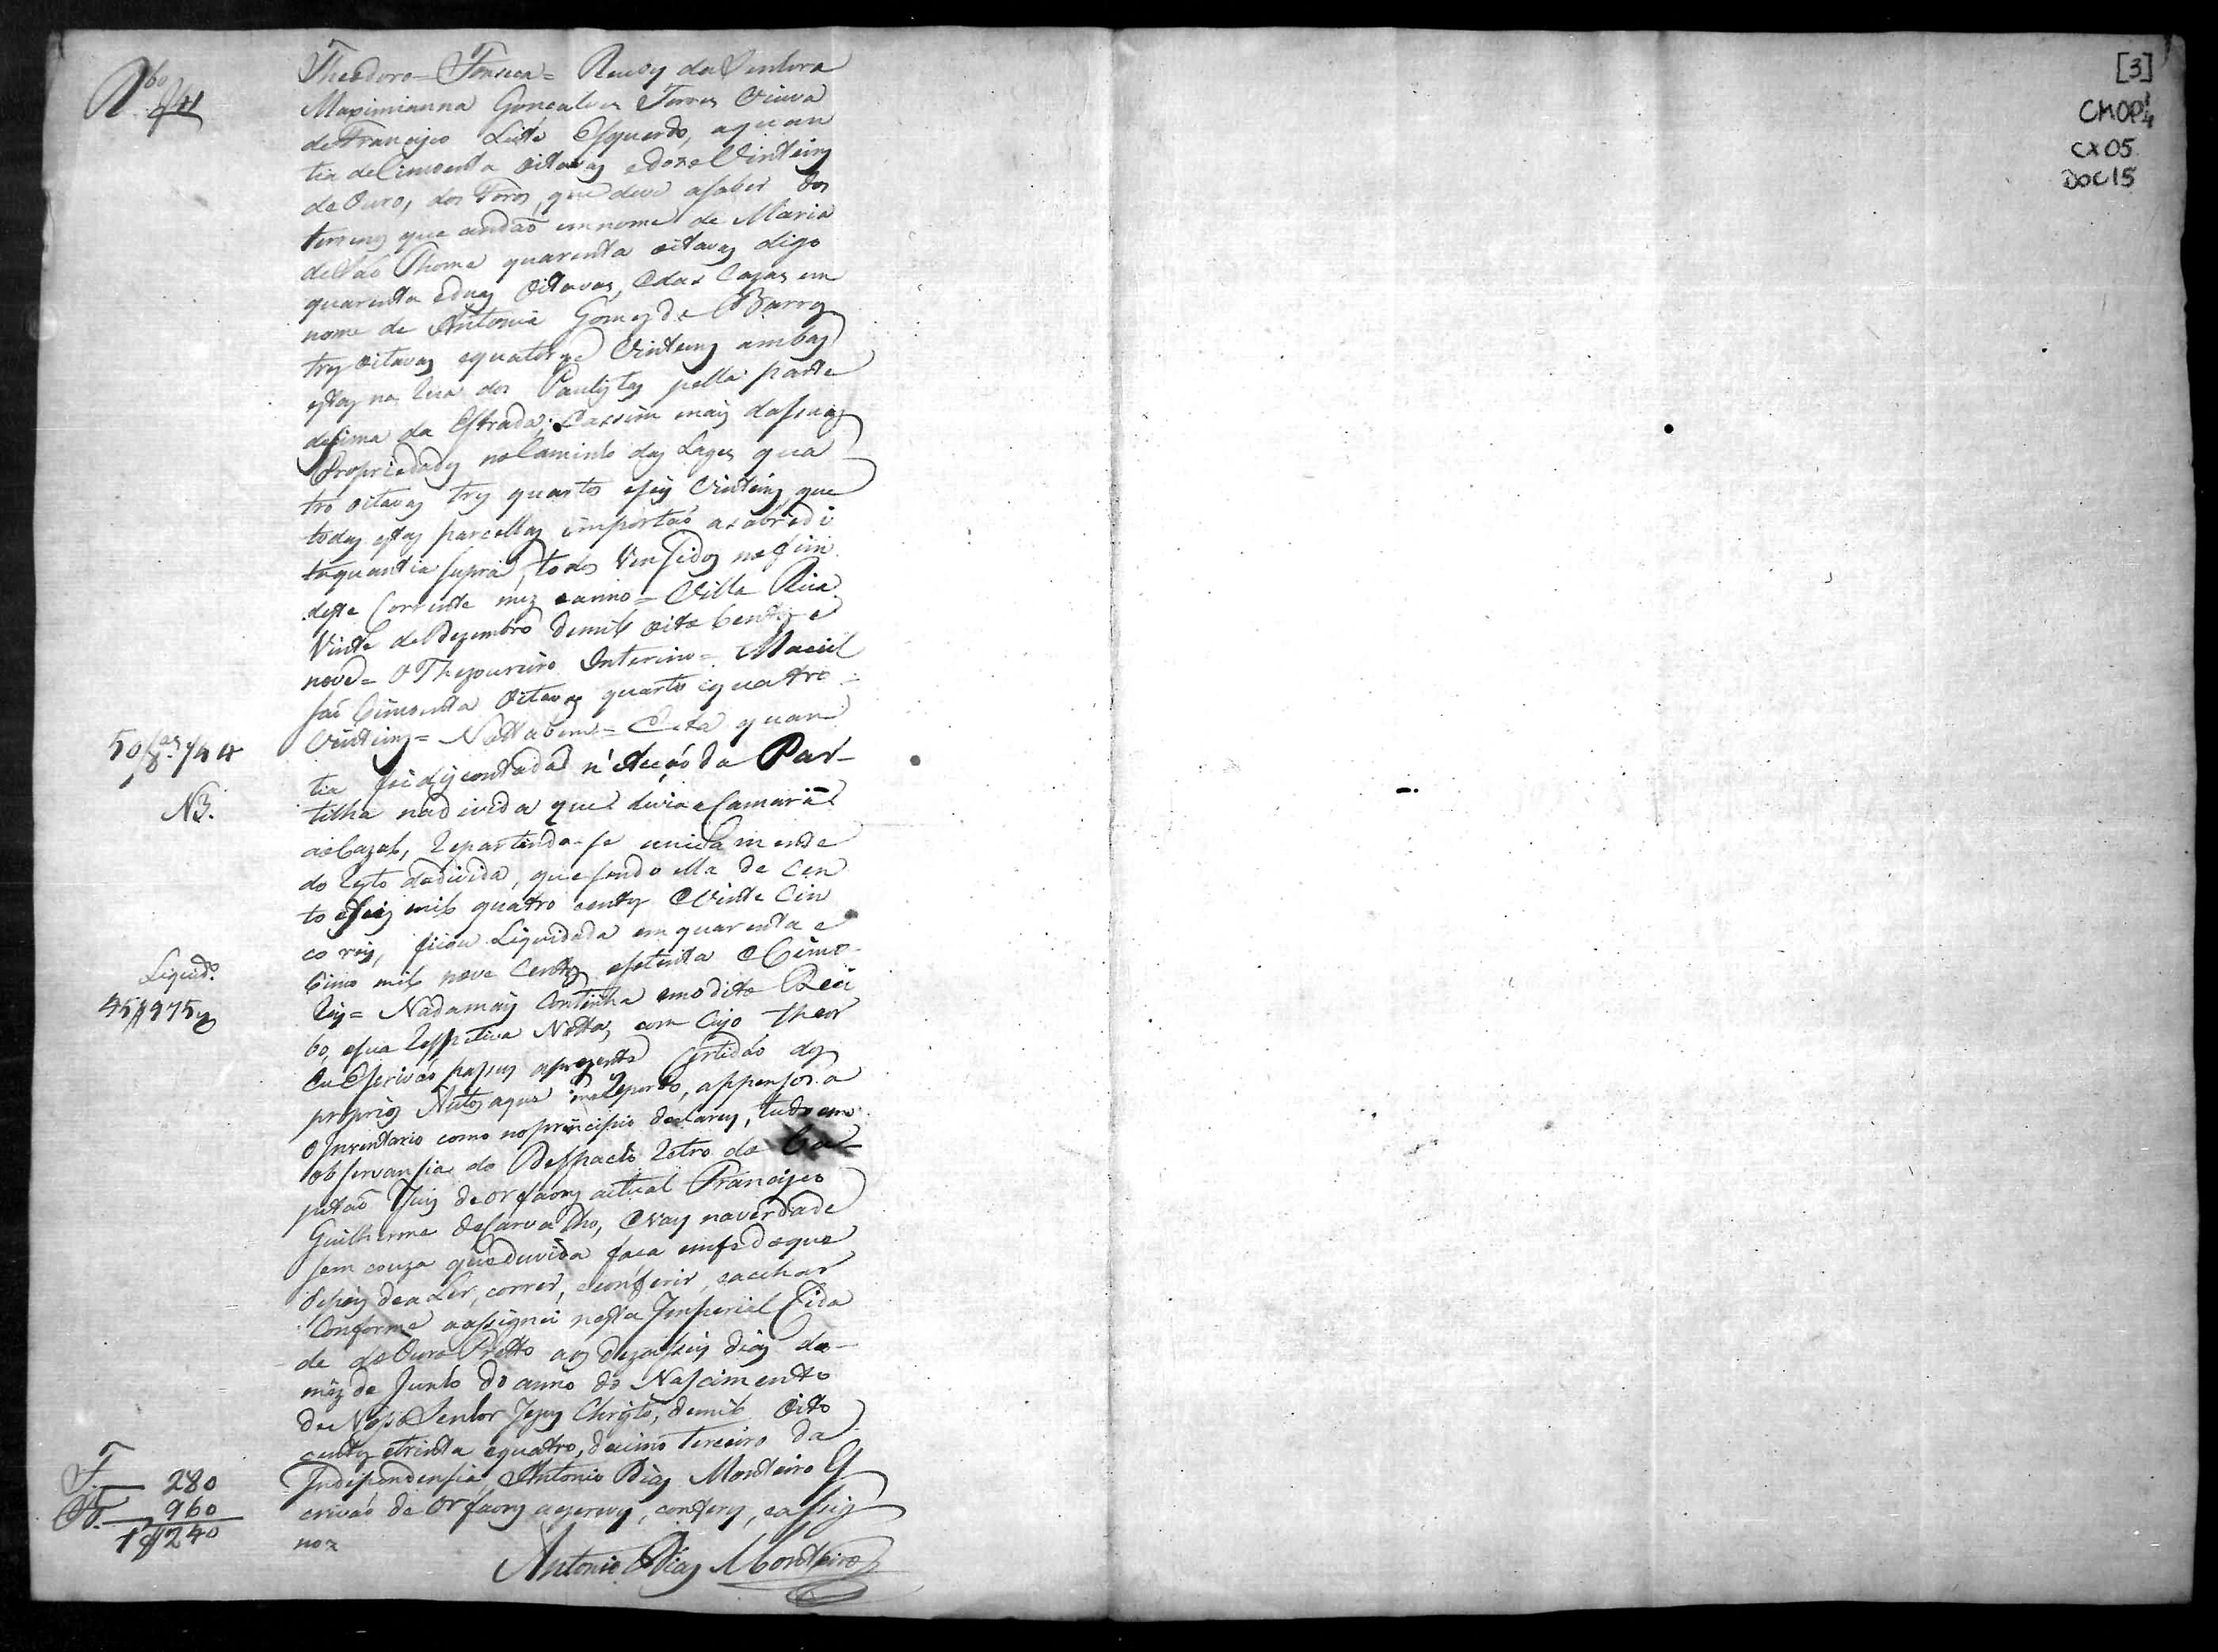 [3]
CMOP 14
CX 05
DOC 15
Theodoro = Fonseca = Recebi da Senhora
Maximianna Gonçalves Torres Viuva
de Francisco Leite Esquerdo, aquan
tia de Cincoenta oitavas edoze Vinteins
de Ouro, dos Foros, que deve asaber dos
terrenos que andaõ em nome de Maria
de Saõ Thome quarenta oitavas digo
quarenta eduas oitavas, e das Cazas em
nome de Antonio Gomes de Barros
tres oitavas equatorze Vinteins ambas
estas na rua dos Paulistas pella parte
desima da Estrada; e assim mais dassuas
Propriedades no Caminho das Lages qua
tro oitavas tres quartos eseis Vinteins, que
todas estas parcellas importaõ
quantia supra, todos Vensidos nofim
deste Corrente mez eanno = Villa Rica
Vinte de Dezembro demil oito Centos e
nove = O Thezoureiro Interino = Maciel
Saõ Cincoenta Oitavas quarto equatro
50/8.as 1/4 4
Vinteins = Notta bene = Esta quan
tia foi discontada n'Acçaõ da Par-
NB.
tilha nadivida que devia a Camara
aoCazal, repartindo-se unicamente
do resto dadivida, que sendo ella de Cen
to eseis mil quatro centos eVinte Cin
co reis, ficou Liquidada em quarenta e
Liquido
Cinco mil nove Centos esetenta eCinco
45$975
reis = Nadamais Continha emodito Reci
bo, esua respetiva Notta, com Cujo theor
Eu Escrivaõ passey aprezente Certidaõ dos
proprios Autos aque me reporto, appensos a
o Inventario como noprincipio declarey, tudo em
observansia do Despacho retro do Ca-
pitaõ Juiz de orfaons actual Francisco
Guilherme deCarvalho, eVay naverdade
sem couza queduvida faca emfedeque
depois dea Ler, correr, econferir, eachar
Conforme aassignei nesta Imperial Cida
de do Ouro Pretto aos dezasseis dias do
mez de Junho do anno do Nascimento
de Nosso Senhor Jezus Christo, demil oito
centos etrinta equatro, decimo terceiro da
Independensia, Antonio Dias Monteiro Es
280
crivaõ de orfaons aescrevy, confery, eassig
960
1$240
nei
Antonio Dias Monteiro